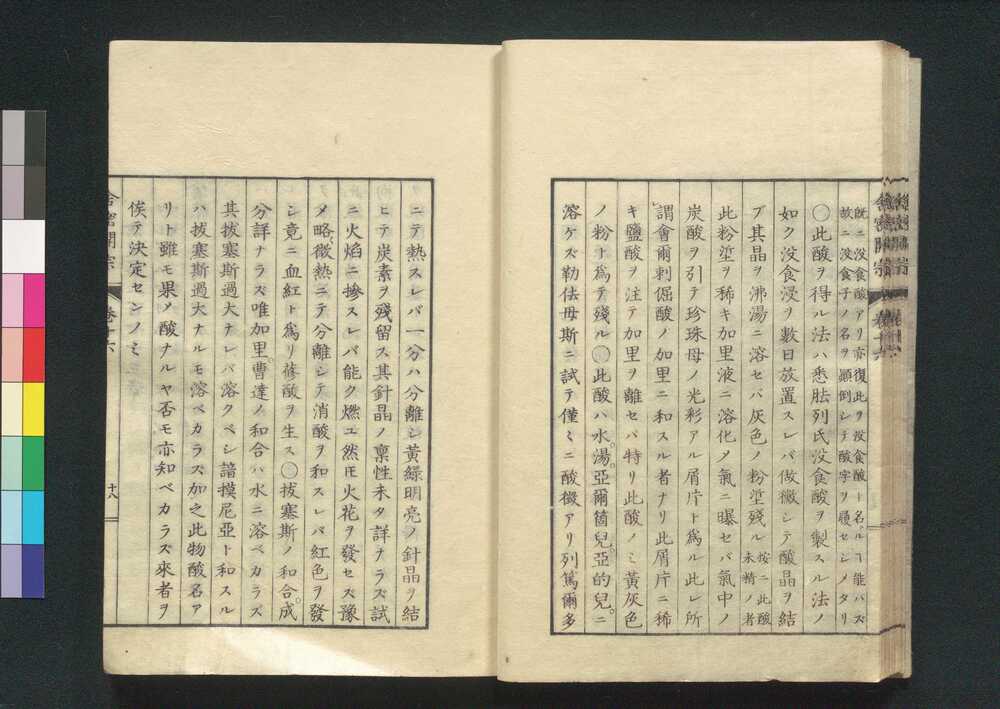 既ニ没食酸アリ亦復此ヲ没食酸ト名ルヿ能ハズ
故ニ没食子ノ名ヲ顚倒シテ酸字ヲ履セシメタリ
〇此酸ヲ得ル法ハ悉胠列氏没食酸ヲ製スル法ノ
如ク没食浸ヲ數日放置スレバ倣黴シテ酸晶ヲ結
ブ其晶ヲ沸湯ニ溶セバ灰色ノ粉埿殘ル按ニ此酸未精ノ者
此粉埿ヲ稀キ加里液ニ溶化メ氣ニ曝セバ氣中ノ
炭酸ヲ引テ珍珠母ノ光彩アル屑片ト爲ル此レ所
謂會爾刺倔酸ノ加里ニ和スル者ナリ此屑片ニ稀
キ鹽酸ヲ注テ加里ヲ離セバ特リ此酸ノミ黃灰色
ノ粉ト爲テ殘ル〇此酸ハ水。湯。亞爾箇兒。亞的兒。ニ
溶ケズ勒佉母斯ニ試テ僅ミニ酸徴アリ列篤爾多
ニテ熱スレバ一分ハ分離シ黃綠明亮ノ針晶ヲ結
ヒテ炭素ヲ殘留ス其針晶ノ稟性未タ詳ナラズ試
ニ火焰ニ摻スレバ能ク燃ユ然𪜈火花ヲ發セズ豫
メ略、微熱ニテ分離シテ消酸ヲ和スレバ紅色ヲ發
シ竟ニ血紅ト爲リ蓚酸ヲ生ス〇拔塞斯ノ和合。成
分詳ナラズ唯加里。曹達ノ和合ハ水ニ溶ベカラズ
其拔塞斯過大ナレバ溶クベシ諳摸尼亞ト和スル
ハ拔塞斯過大ナルモ溶ベカラズ加之此物酸名ア
リト雖モ果メ酸ナルヤ否モ亦知ベカラズ來者ヲ
俟テ決定センノミ
舎密開宗 卷十六
十八